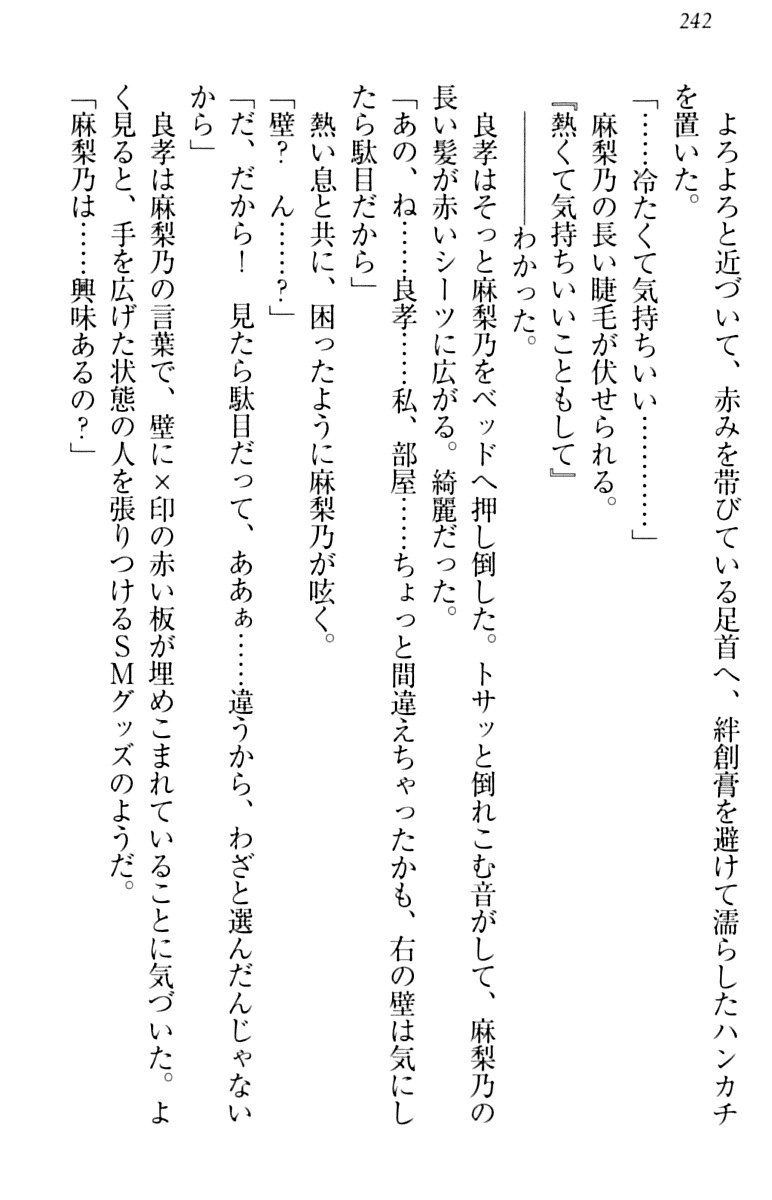 242
よろよろと近づいて、赤みを帯びている足首へ、絆創膏を避けて濡らしたハンカチ
を置いた。
「……冷たくて気持ちいい…………」
麻梨乃の長い睫毛が伏せられる。
『熱くて気持ちいいこともして』
―――わかった。
良孝はそっと麻梨乃をベッドへ押し倒した。トサッと倒れこむ音がして、麻梨乃の
長い髪が赤いシーツに広がる。綺麗だった。
「あの、ね……良孝……私、部屋……ちょっと間違えちゃったかも、右の壁は気にし
たら駄目だから」
熱い息と共に、困ったように麻梨乃が呟く。
「壁？　ん……？」
「だ、だから！　見たら駄目だって、ああぁ……違うから、わざと選んだんじゃない
から」
良孝は麻梨乃の言葉で、壁に×印の赤い板が埋めこまれていることに気づいた。よ
く見ると、手を広げた状態の人を張りつけるＳＭグッズのようだ。
「麻梨乃は……興味あるの？」